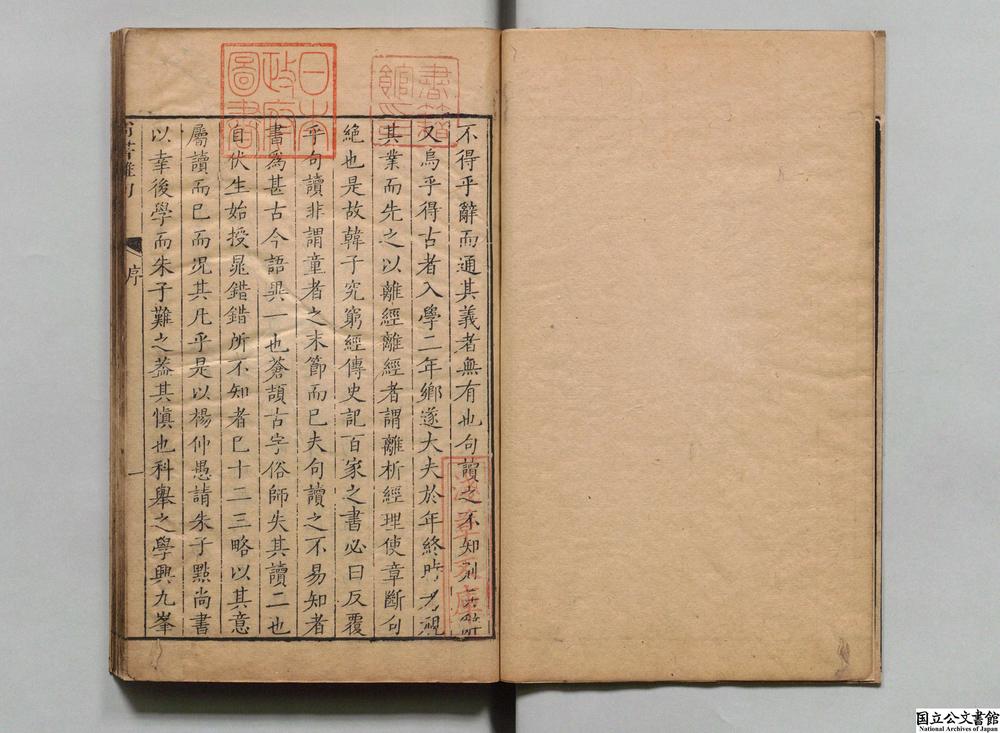 不得乎辭而通其義者無有也句讀之不知則
又烏乎得古者入學二年鄉遂大夫於年終時考視
其業而先之以離經離經者謂離析經理使章斷句
絕也是故韓子究窮經傳史記百家之書必曰反覆
乎句讀非謂童者之末節而已夫句讀之不易知者
書爲甚古今語異一也蒼頡古字俗師失其讀二也
自伏生始授晁錯錯所不知者已十二三略以其意
屬讀而已而況其凡乎是以楊仲愚請朱子點尚書
以幸後學而朱子難之葢其愼也科舉之學興九峯
序
一
日本
政府
圖書
書籍
館印
淺草文庫
国立公文書館
National Archives of Japan